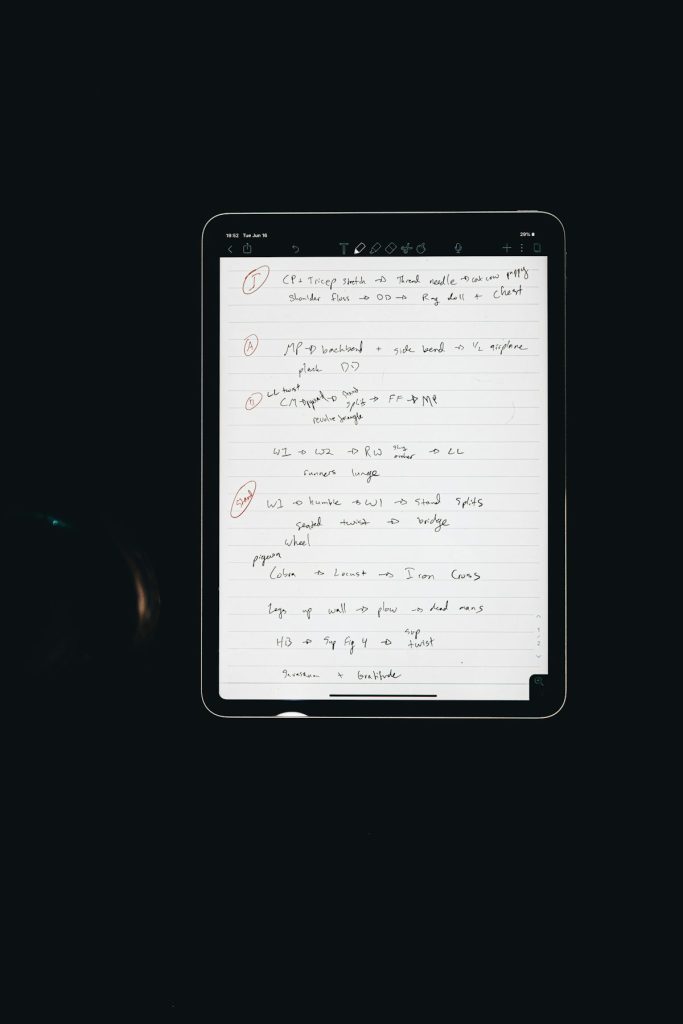 18:52 Tue Jun 16
29%
T
CP + Tricep stretch → Thread needle → cat cow puppy
Shoulder floss → DD → Rag doll + Chest
A
MP → backbend + side bend → 1/2 airplane
plank DD
LL twist
CM → → stand splits → FF → MP
revolve triangle
W1 → W2 → RW → LL
runners lunge
Stand
W1 → humble → W1 → stand splits
seated twist → bridge
wheel
pigeon
Cobra → Locust → Iron Cross
Legs up wall → plow → dead mans
HB → Sup Fig 4 → sup twist
Savasana + Gratitude
1
2